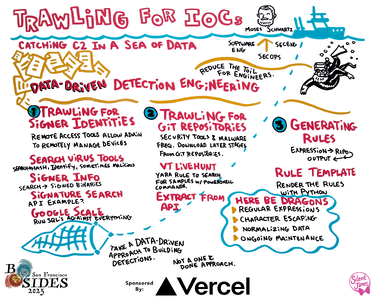 TRAWLING FOR IOCs
MOSES SCHWARTZ
CATCHING C2 IN A SEA OF DATA
SOFTWARE ENG
SECENG
SECOPS
REDUCE THE TOIL
FOR ENGINEERS.
DATA-DRIVEN DETECTION ENGINEERING
1 TRAWLING FOR
SIGNER IDENTITIES
REMOTE ACCESS TOOLS ALLOW ADMIN
TO REMOTELY MANAGE DEVICES
SEARCH VIRUS TOOLS
SIGNER INFO
SEARCH → SIGNED BINARIES
SIGNATURE SEARCH
API EXAMPLE?
GOOGLE SCALE
RUN SQLS AGAINST EVERYTHING
2 TRAWLING FOR
GIT REPOSITORIES
SECURITY TOOLS & MALWARE
FREQ. DOWNLOAD LATER STAGES
FROM GIT REPOSITORIES.
VT LIVEHUNT
YARA RULE TO SEARCH
FOR SAMPLES W/ POWERSHELL
COMMAND.
EXTRACT FROM
API
3 GENERATING
RULES
EXPRESSION →
OUTPUT
RULE TEMPLATE
RENDER THE RULES
WITH PYTHON
HERE BE DRAGONS
REGULAR EXPRESSIONS
CHARACTER ESCAPING
NORMALIZING DATA
ONGOING MAINTENANCE
TAKE A DATA-DRIVEN
APPROACH TO BUILDING
DETECTIONS.
NOT A ONE &
DONE APPROACH.
BSIDES
San Francisco
2025
Sponsored
By:
Vercel